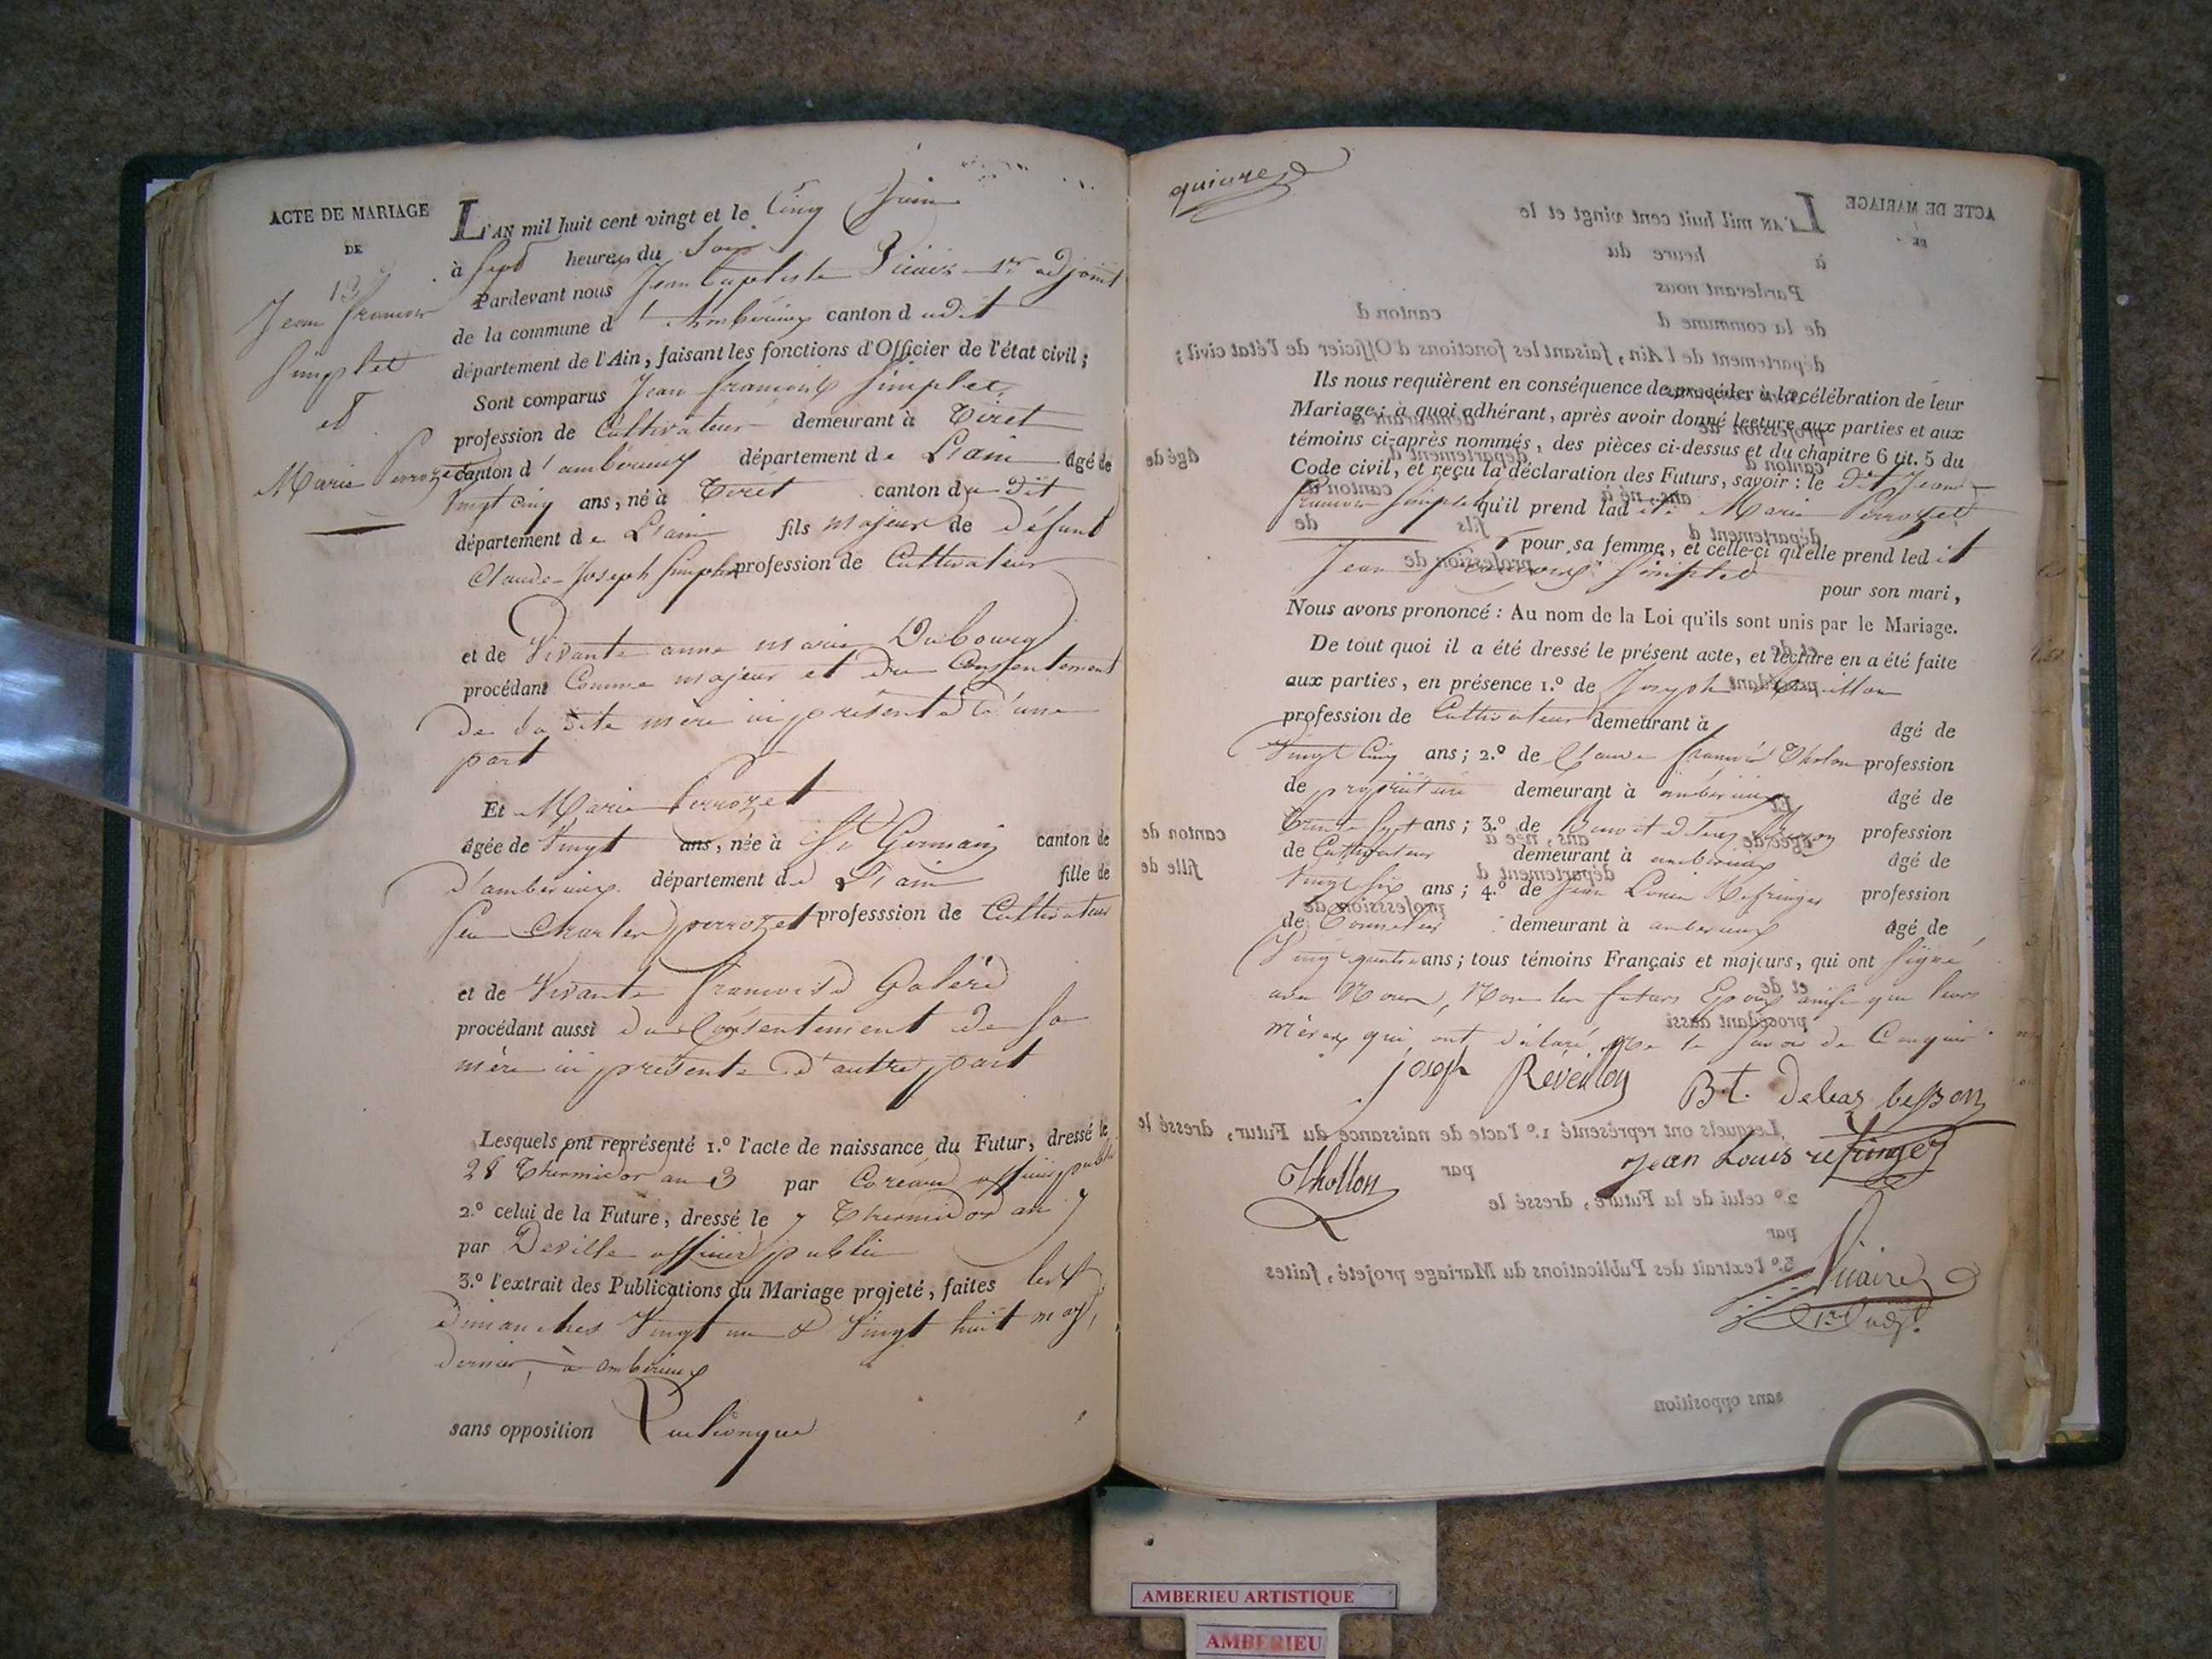 ACTE DE MARIAGE
DE
Jean francois
Simplet
et
Marie Perrozet
L'AN mil huit cent vingt et le Cinq Juin
à Sept heures du Soir
Pardevant nous Jean Baptiste Vicaire 1er adjoint
de la commune d'Amberieux canton dudit
département de l'Ain, faisant les fonctions d'Officier de l'état civil;
Sont comparus Jean francois Simplet
profession de Cultivateur demeurant à Tiret
canton d'amberieux département de L'ain âgé de
Vingt cinq ans, né à Tiret canton du dit
département de L'ain fils majeur de défunt
Claude Joseph Simplet profession de Cultivateur
et de Vivante anne marie Dubourg
procédant Comme majeur et du Consentement
de la dite mère ici présente d'une
part
Et Marie Perrozet
âgée de Vingt ans, née à St Germain canton de
d'amberieux département de L'ain fille de
feu Charles perrozet professsion de Cultivateur
et de Vivante francoise Galéré
procédant aussi du Consentement de sa
mère ici présente d'autre part
Lesquels ont représenté 1.º l'acte de naissance du Futur, dressé le
28 Thermidor an 3 par officier public
2.º celui de la Future, dressé le 7 Thermidor an 7
par Deville officier public
3.º l'extrait des Publications du Mariage projeté, faites les
dimanches Vingt un & Vingt huit may
dernier, à amberieux
sans opposition Quelconque
Ils nous requièrent en conséquence de procéder à la célébration de leur
Mariage; à quoi adhérant, après avoir donné lecture aux parties et aux
témoins ci-après nommés, des pièces ci-dessus et du chapitre 6 tit. 5 du
Code civil, et reçu la déclaration des Futurs, savoir: le dit Jean
francois Simplet qu'il prend ladite Marie Perrozet
pour sa femme, et celle-ci qu'elle prend ledit
Jean francois Simplet pour son mari,
Nous avons prononcé: Au nom de la Loi qu'ils sont unis par le Mariage.
De tout quoi il a été dressé le présent acte, et lecture en a été faite
aux parties, en présence 1.º de Joseph Reveillon
profession de Cultivateur demeurant à âgé de
Vingt Cinq ans; 2.º de Claude francois Tholon profession
de propriétaire demeurant à amberieux âgé de
Trente Sept ans; 3.º de Benoit profession
de Cultivateur demeurant à amberieux âgé de
Vingt Six ans; 4.º de Jean Louis Refringer profession
de Tonnelier demeurant à amberieux âgé de
Vingt quatre ans; tous témoins Français et majeurs, qui ont signé
avec Nous, Non les futurs Epoux ainsi que leurs
mères qui ont déclaré ne le Savoir de Ce enquis
joseph Reveillon
B.t. Deleaz besson
Thollon
Jean Louis refringer
Vicaire
1er adjt
AMBERIEU ARTISTIQUE
AMBERIEU